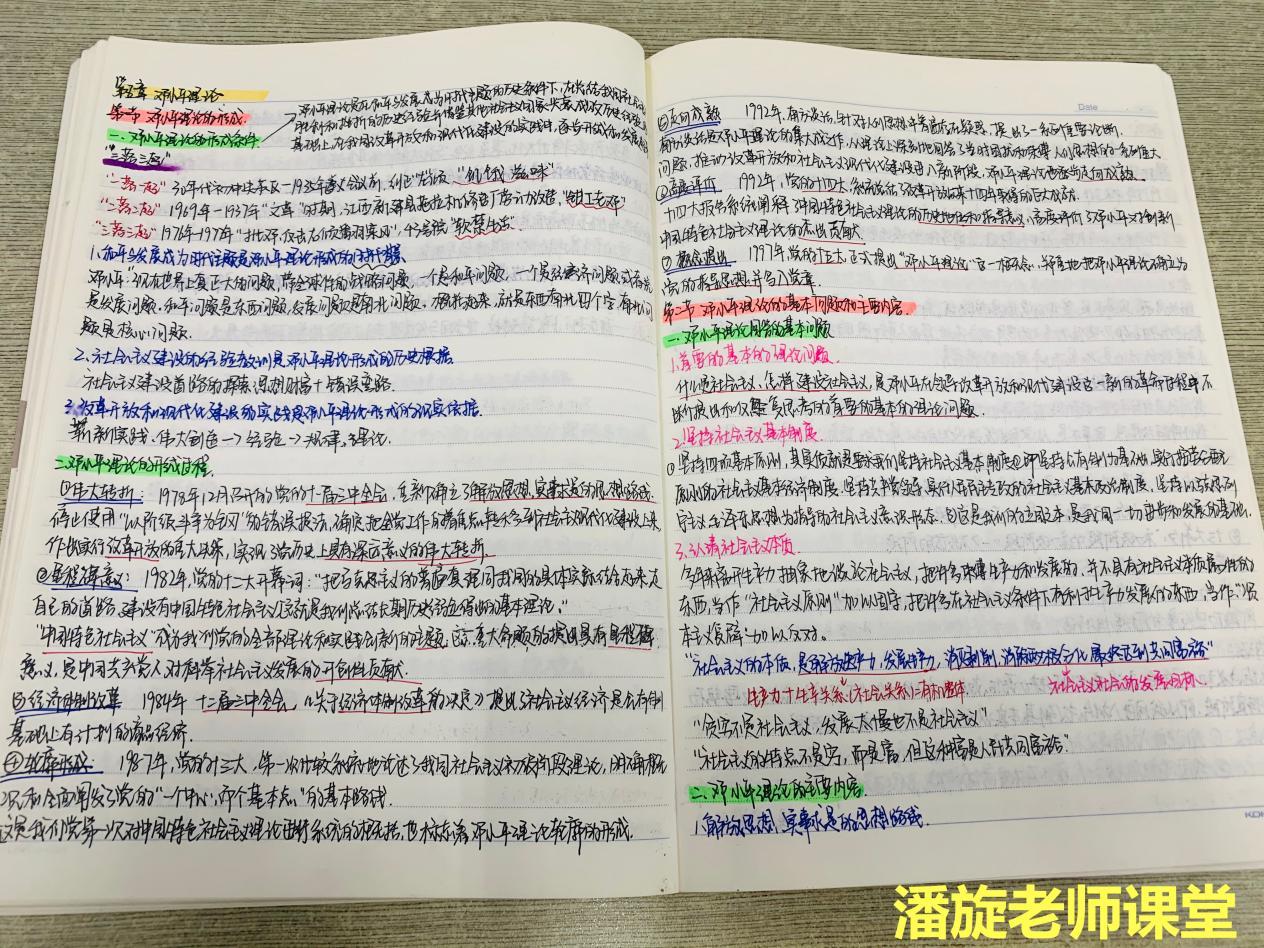 第五章 邓小平理论
第一节 邓小平理论的形成
一、邓小平理论的形成条件
邓小平理论是在和平与发展成为时代主题的历史条件下，在总结我国社会主义
胜利和挫折的历史经验并借鉴其他社会主义国家兴衰成败历史经验的
基础上，在我国改革开放和现代化建设的实践中，逐步形成和发展
"三落三起"
"一落一起" 30年代初中央苏区—1935年遵义会议前，
"二落二起" 1969年—1973年"文革"时期，江西新建县拖拉机修造厂劳动改造，
"三落三起" 1976年—1977年"批邓、反击右倾翻案风"，
1.和平与发展成为时代主题是邓小平理论形成的时代背景
邓小平："现在世界上真正大的问题，带全球性的战略问题，一个是和平问题，一个是经济问题或者说
是发展问题，和平问题是东西问题，发展问题是南北问题。概括起来，就是东西南北四个字，南北问
题是核心问题。
2.社会主义建设的经验教训是邓小平理论形成的历史根据
社会主义建设道路的探索思想财富+错误实践。
3.改革开放和现代化建设的实践是邓小平理论形成的现实依据
革新实践、伟大创造→经验→规律、理论。
二、邓小平理论的形成过程
①伟大转折： 1978年12月召开的党的十一届三中全会，重新确立了解放思想、实事求是的思想路线，
停止使用"以阶级斗争为纲"的错误提法，确定把全党工作的着重点转移到社会主义现代化建设上来，
作出实行改革开放的重大决策，实现了党的历史上具有深远意义的伟大转折。
②里程碑意义： 1982年，党的十二大开幕词："把马克思主义的普遍真理同我国的具体实际结合起来，走
自己的道路，建设有中国特色社会主义，这就是我们总结长期历史经验得出的基本理论。"
"中国特色社会主义"成为我们党的全部理论和实践创新的主题，这一重大命题的提出具有里程碑
意义，是中国共产党人对科学社会主义发展的开创性贡献。
③经济体制改革 1984年 十二届三中全会，《关于经济体制改革的决定》提出《社会主义经济是公有制
基础上有计划的商品经济。
④轮廓形成： 1987年，党的十三大，第一次比较系统地论述了我国社会主义初级阶段理论，明确概括
和全面阐发了党的"一个中心、两个基本点"的基本路线。
这是我们党第一次对中国特色社会主义理论进行系统的概括，也标志着邓小平理论轮廓的形成。
⑤走向成熟 1992年，南方谈话，针对人们思想中普遍存在疑惑，提出了一系列重要论断。
南方谈话是邓小平理论的集大成之作，从理论上深刻地回答了当时困扰和束缚人们思想的一系列重大
问题，推动改革开放和社会主义现代化建设进入新阶段，邓小平理论也逐步走向成熟。
⑥高度评价 1992年，党的十四大，
十四大报告系统阐释了中国特色社会主义理论的历史地位和指导意义，高度评价了邓小平对创新
中国特色社会主义理论的杰出贡献。
⑦概念提出 1997年党的十五大，正式提出"邓小平理论"这一概念，并郑重地把邓小平理论确立为
党的指导思想并写入党章。
第二节 邓小平理论的基本问题和主要内容
一、邓小平理论回答的基本问题
1.首要的基本的理论问题
什么是社会主义，怎样建设社会主义，是邓小平在领导改革开放和现代化建设这一新的革命过程中不
断提出和反复思考的首要的基本的理论问题。
2.坚持社会主义基本制度
①坚持四项基本原则，其实质就是要求我们坚持社会主义基本制度②即坚持公有制为基础，实行按劳分配
原则的社会主义基本经济制度，坚持共产党领导，实行人民民主专政的社会主义基本政治制度，坚持以马克思列
宁主义毛泽东思想为指导的社会主义意识形态。③这是我们的立国之本，是我国一切进步和发展的基础。
3.认清社会主义本质
多年来离开生产力抽象地谈论社会主义，把许多束缚生产力和发展的，并不具有社会主义本质属性的
东西，当作"社会主义原则"加以固守，把许多在社会主义条件下有利于生产力发展的东西，当作"资
本主义复辟"加以反对。
"社会主义的本质，是解放生产力，发展生产力，消灭剥削，消除两极分化，最终达到共同富裕"
生产力+生产关系(社会关系)=有机整体 社会主义社会的发展目标
"贫穷不是社会主义，发展太慢也不是社会主义"
"社会主义的特点不是穷，而是富，但这种富是人民共同富裕"
二、邓小平理论的主要内容
1.解放思想、实事求是的思想路线
Date
潘旋老师课堂